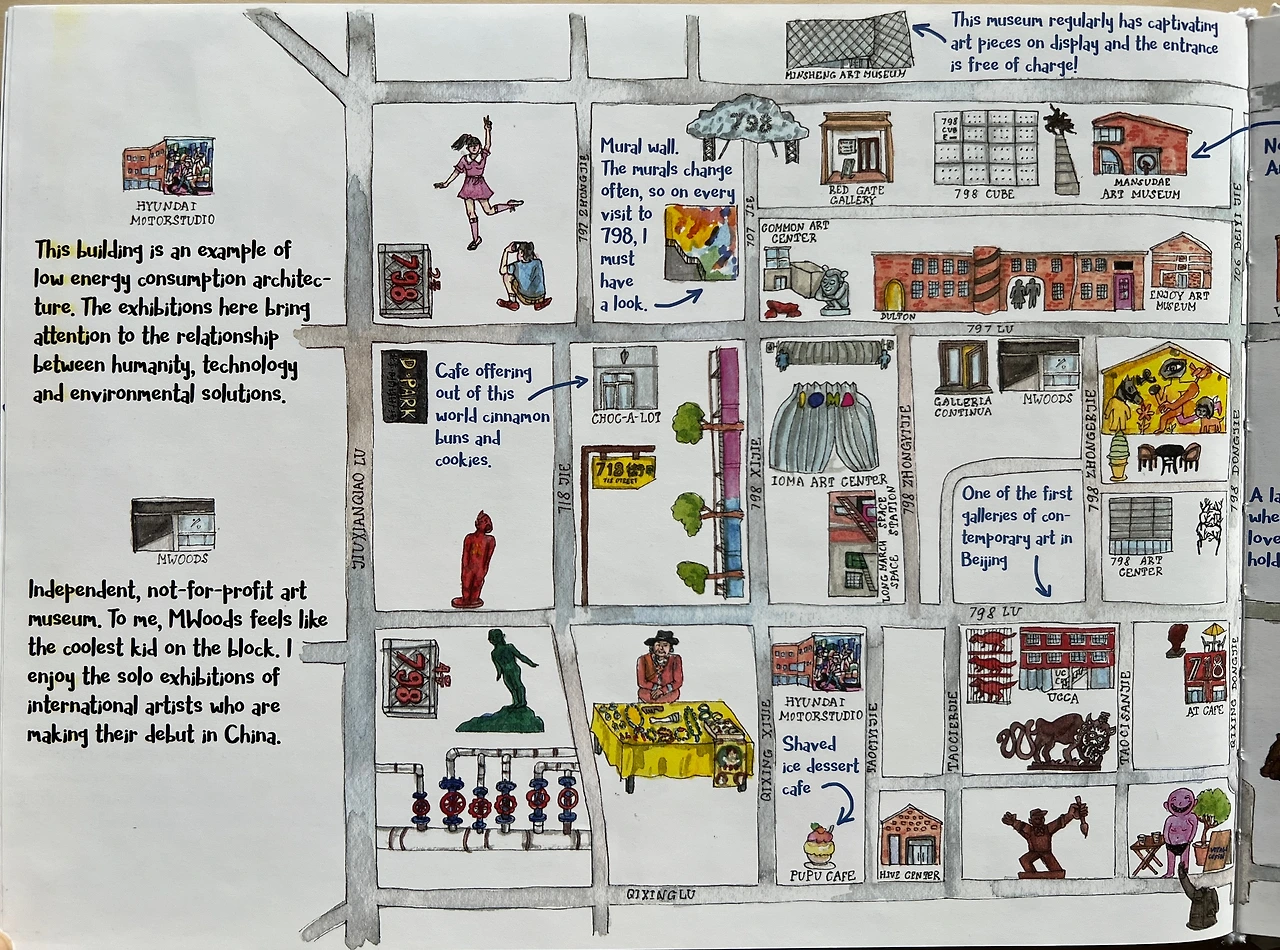 This museum regularly has captivating
art pieces on display and the entrance
is free of charge!
MINSHENG ART MUSEUM
HYUNDAI
MOTORSTUDIO
This building is an example of
low energy consumption architec-
ture. The exhibitions here bring
attention to the relationship
between humanity, technology
and environmental solutions.
MWOODS
Independent, not-for-profit art
museum. To me, MWoods feels like
the coolest kid on the block. I
enjoy the solo exhibitions of
international artists who are
making their debut in China.
JIUXIANQIAO LU
798
797 ZHONGJIE
Mural wall.
The murals change
often, so on every
visit to
798, I
must
have
a look.
798
707 JIE
RED GATE
GALLERY
798
CUB
E
798 CUBE
MANSUDAE
ART MUSEUM
706 BEIYI JIE
COMMON ART
CENTER
DULTON
ENJOY ART
MUSEUM
797 LU
D·PARK
Cafe offering
out of this
world cinnamon
buns and
cookies.
CHOC-A-LOT
718
718 STREET
718 JIE
798 XIJIE
IOMA
IOMA ART CENTER
LONG MARCH SPACE
SPACE STATION
798 ZHONGYIJIE
GALLERIA
CONTINUA
MWOODS
798 ZHONGERJIE
798 DONGJIE
One of the first
galleries of con-
temporary art in
Beijing
798 ART
CENTER
798 LU
798
HYUNDAI
MOTORSTUDIO
Shaved
ice dessert
cafe
PUPU CAFE
QIXING XIJIE
TAOCIYIJIE
HIVE CENTER
TAOCIERJIE
UCCA
UCCA
TAOCISANJIE
718
AT CAFE
QIXING DONGJIE
QIXING LU
No
A
A la
whe
love
hold